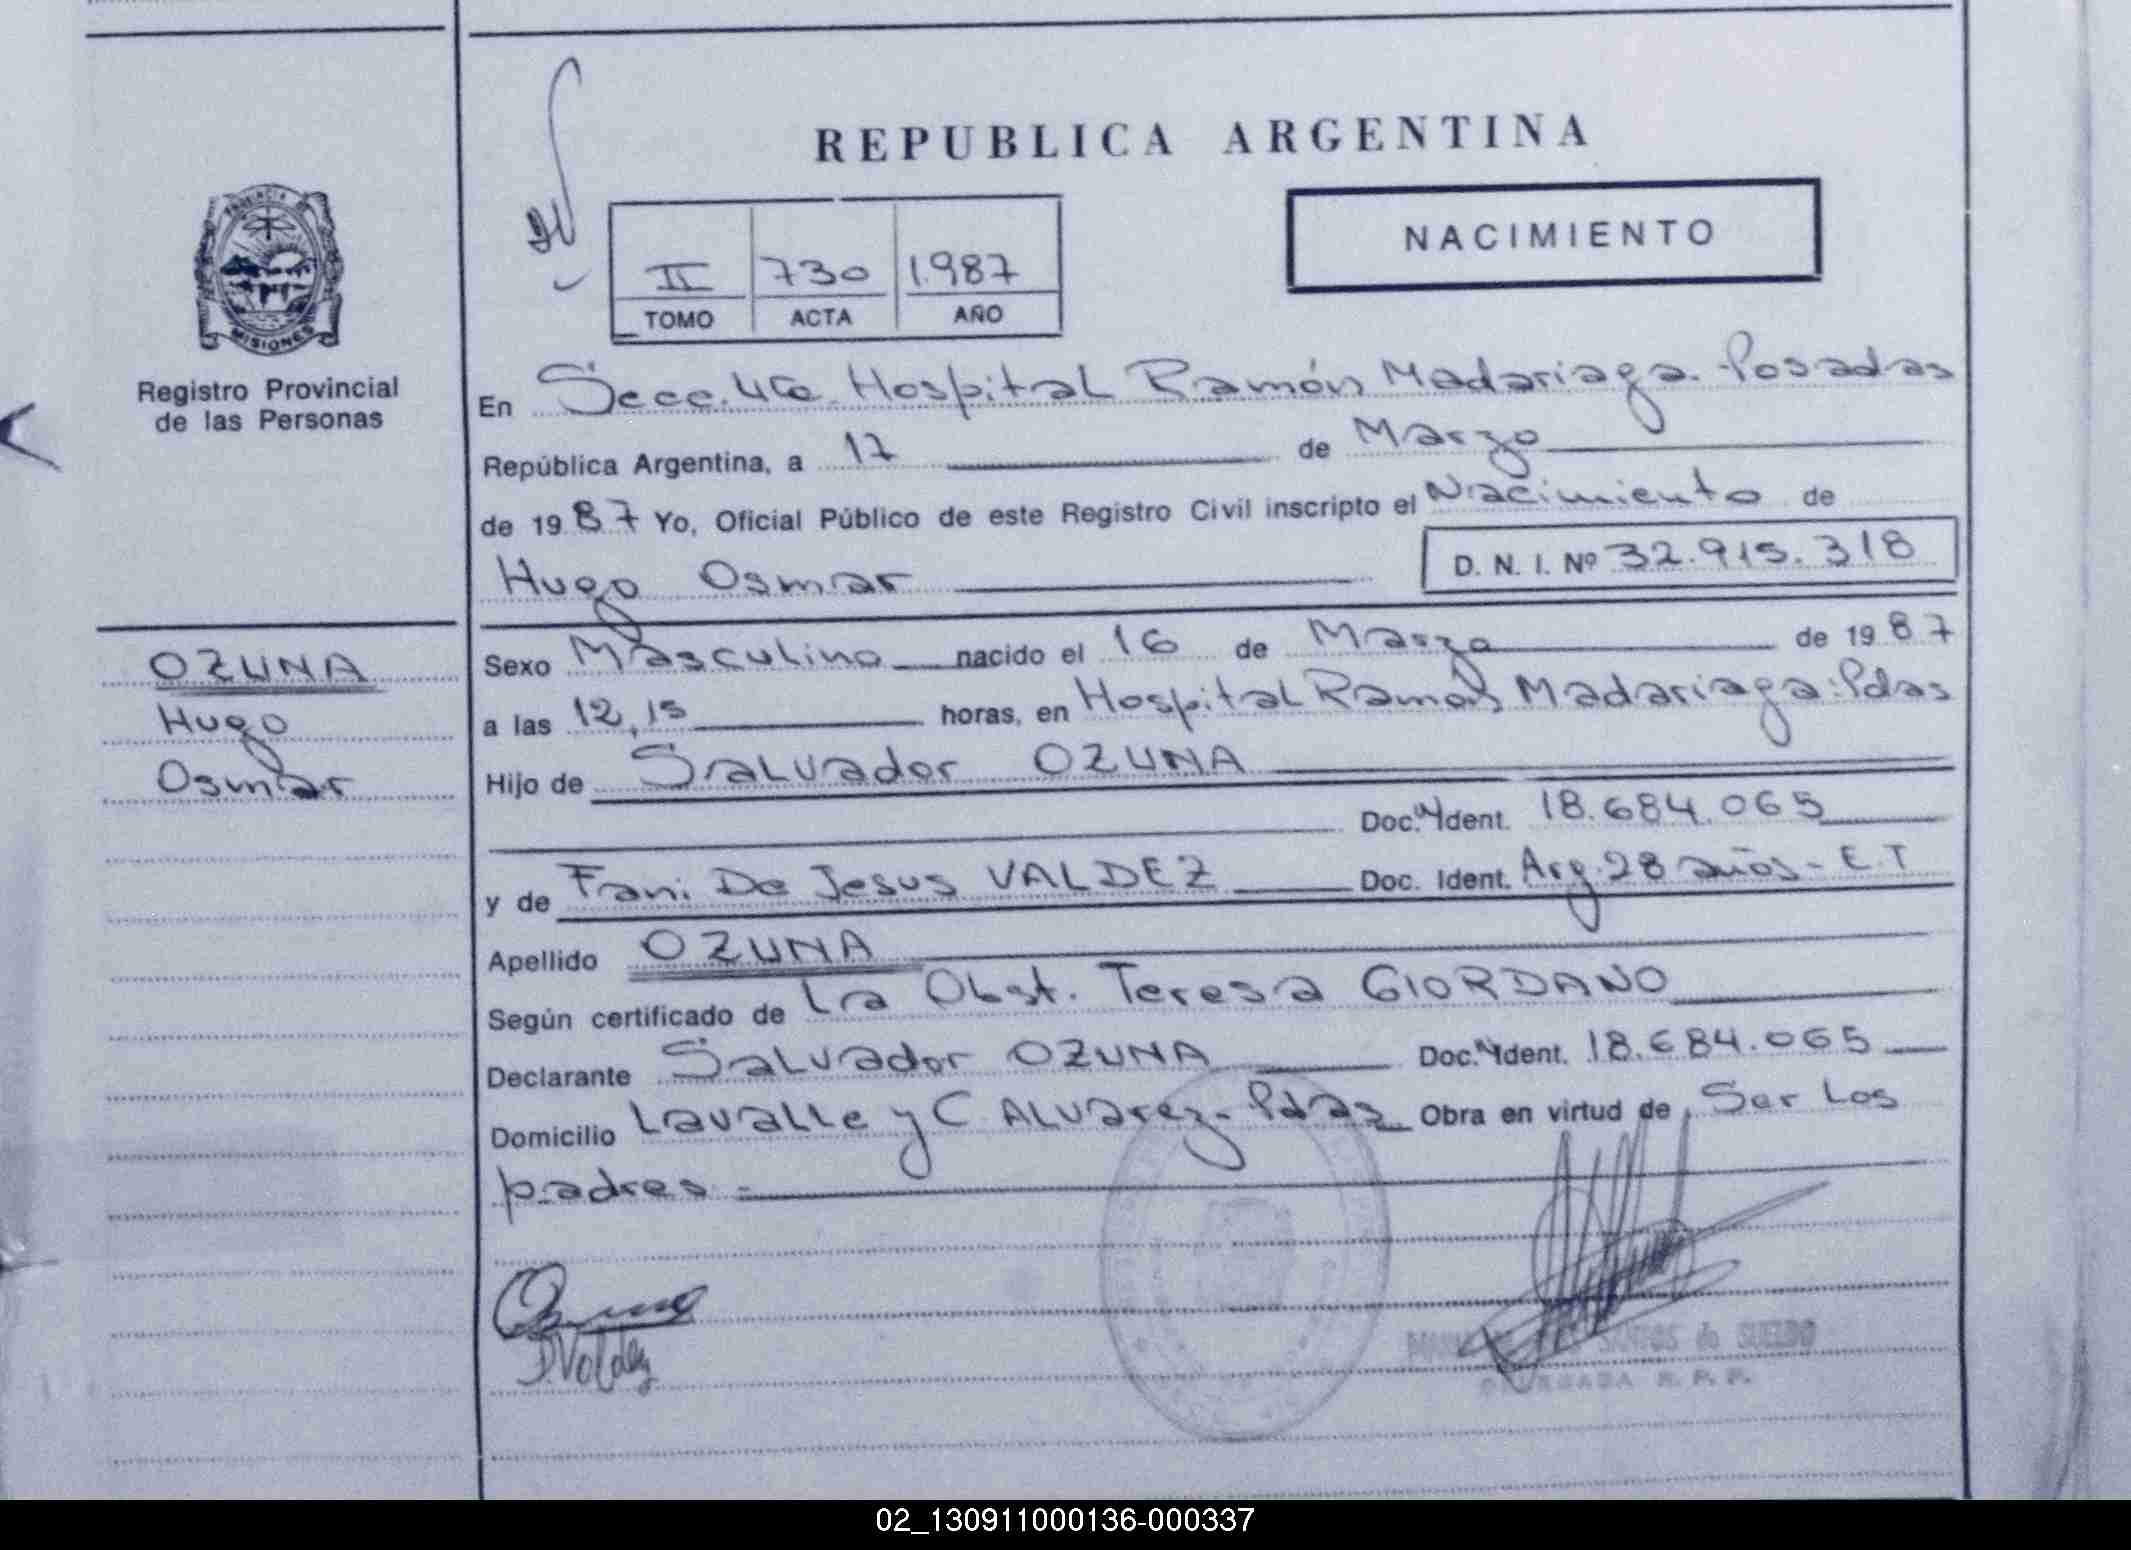 REPUBLICA ARGENTINA
PROVINCIA DE
MISIONES
Registro Provincial
de las Personas
II 730 1.987
TOMO ACTA AÑO
NACIMIENTO
En Secc. 4ta Hospital Ramón Madariaga. Posadas
República Argentina, a 17 de Marzo
de 19 87 Yo, Oficial Público de este Registro Civil inscripto el Nacimiento de
Hugo Osmar D. N. I. Nº 32.915.318
OZUNA
Hugo
Osmar
Sexo Masculino nacido el 16 de Marzo de 19 87
a las 12,15 horas, en Hospital Ramón Madariaga: Pdas
Hijo de Salvador OZUNA
Doc. Ident. 18.684.065
y de Fani De Jesus VALDEZ Doc. Ident. Arg. 28 años - E.T
Apellido OZUNA
Según certificado de La Obst. Teresa GIORDANO
Declarante Salvador OZUNA Doc. Ident. 18.684.065
Domicilio Lavalle y C. ALvarez - Pdas Obra en virtud de Ser Los
padres -
D. Valdez
SANTOS de SUELDO
DELEGADA R. P. P.
02_130911000136-000337